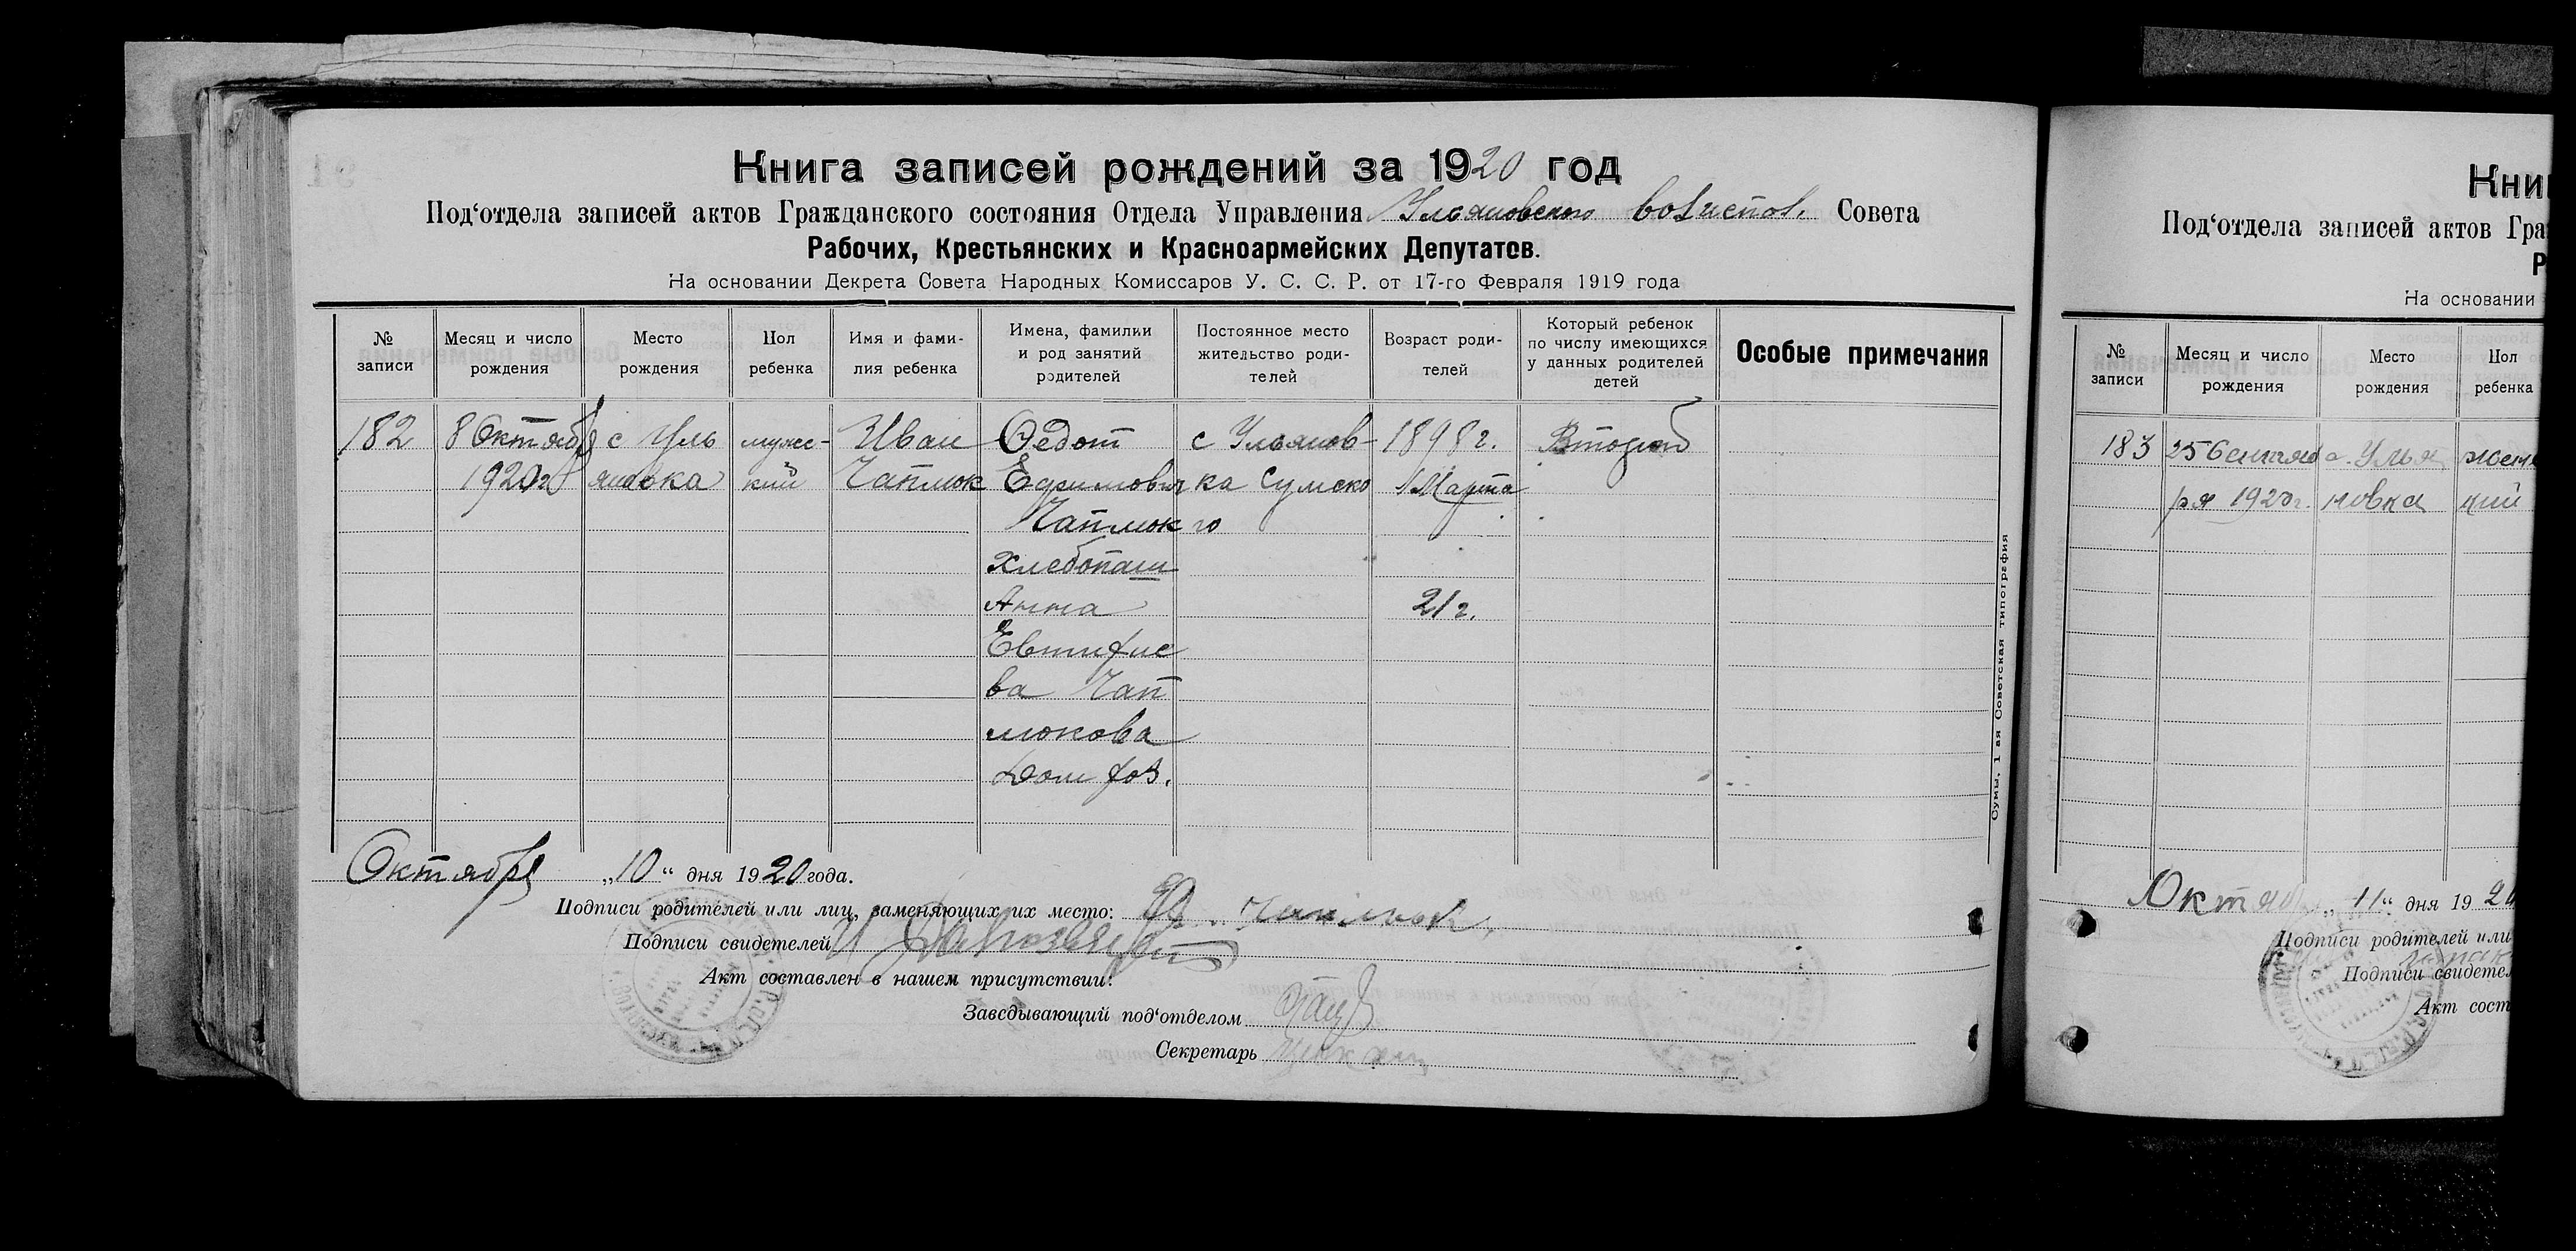 Книга записей рождений за 1920 год
Под'отдела записей актов Гражданского состояния Отдела Управления Ульяновского волиспол. Совета
Рабочих, Крестьянских и Красноармейских Депутатов.
На основании Декрета Совета Народных Комиссаров У. С. С. Р. от 17-го Февраля 1919 года
№ записи
Месяц и число рождения
Место рождения
Пол ребенка
Имя и фами-
лия ребенка
Имена, фамилии
и род занятий
родителей
Постоянное место
жительство роди-
телей
Возраст роди-
телей
Который ребенок
по числу имеющихся
у данных родителей
детей
Особые примечания
182 8 Октября с Уль мужс- Иван Федот с Ульянов- 1898 г. Второй
1920 г. яновка кий Чаплюк Ефимович ка Сумско 1 Марта
Чаплюк го
хлебопаш
Анна 21 г.
Евтифие
ва Чап
люкова
Дом хоз.
Октября „10“ дня 1920 года.
Подписи родителей или лиц, заменяющих их место: Ф. Чаплюк.
Подписи свидетелей
Акт составлен в нашем присутствии:
Заведывающий под'отделом
Секретарь
Сумы, 1 ая Советская типография
Кни
Под'отдела записей актов Гра
Р
На основании
№ записи
Месяц и число рождения
Место рождения
Пол ребенка
183 25 Сентяб с. Улья женс
ря 1920 г. новка кий
Октяб „11“ дня 192
Подписи родителей или
Подписи свидете
Акт сост